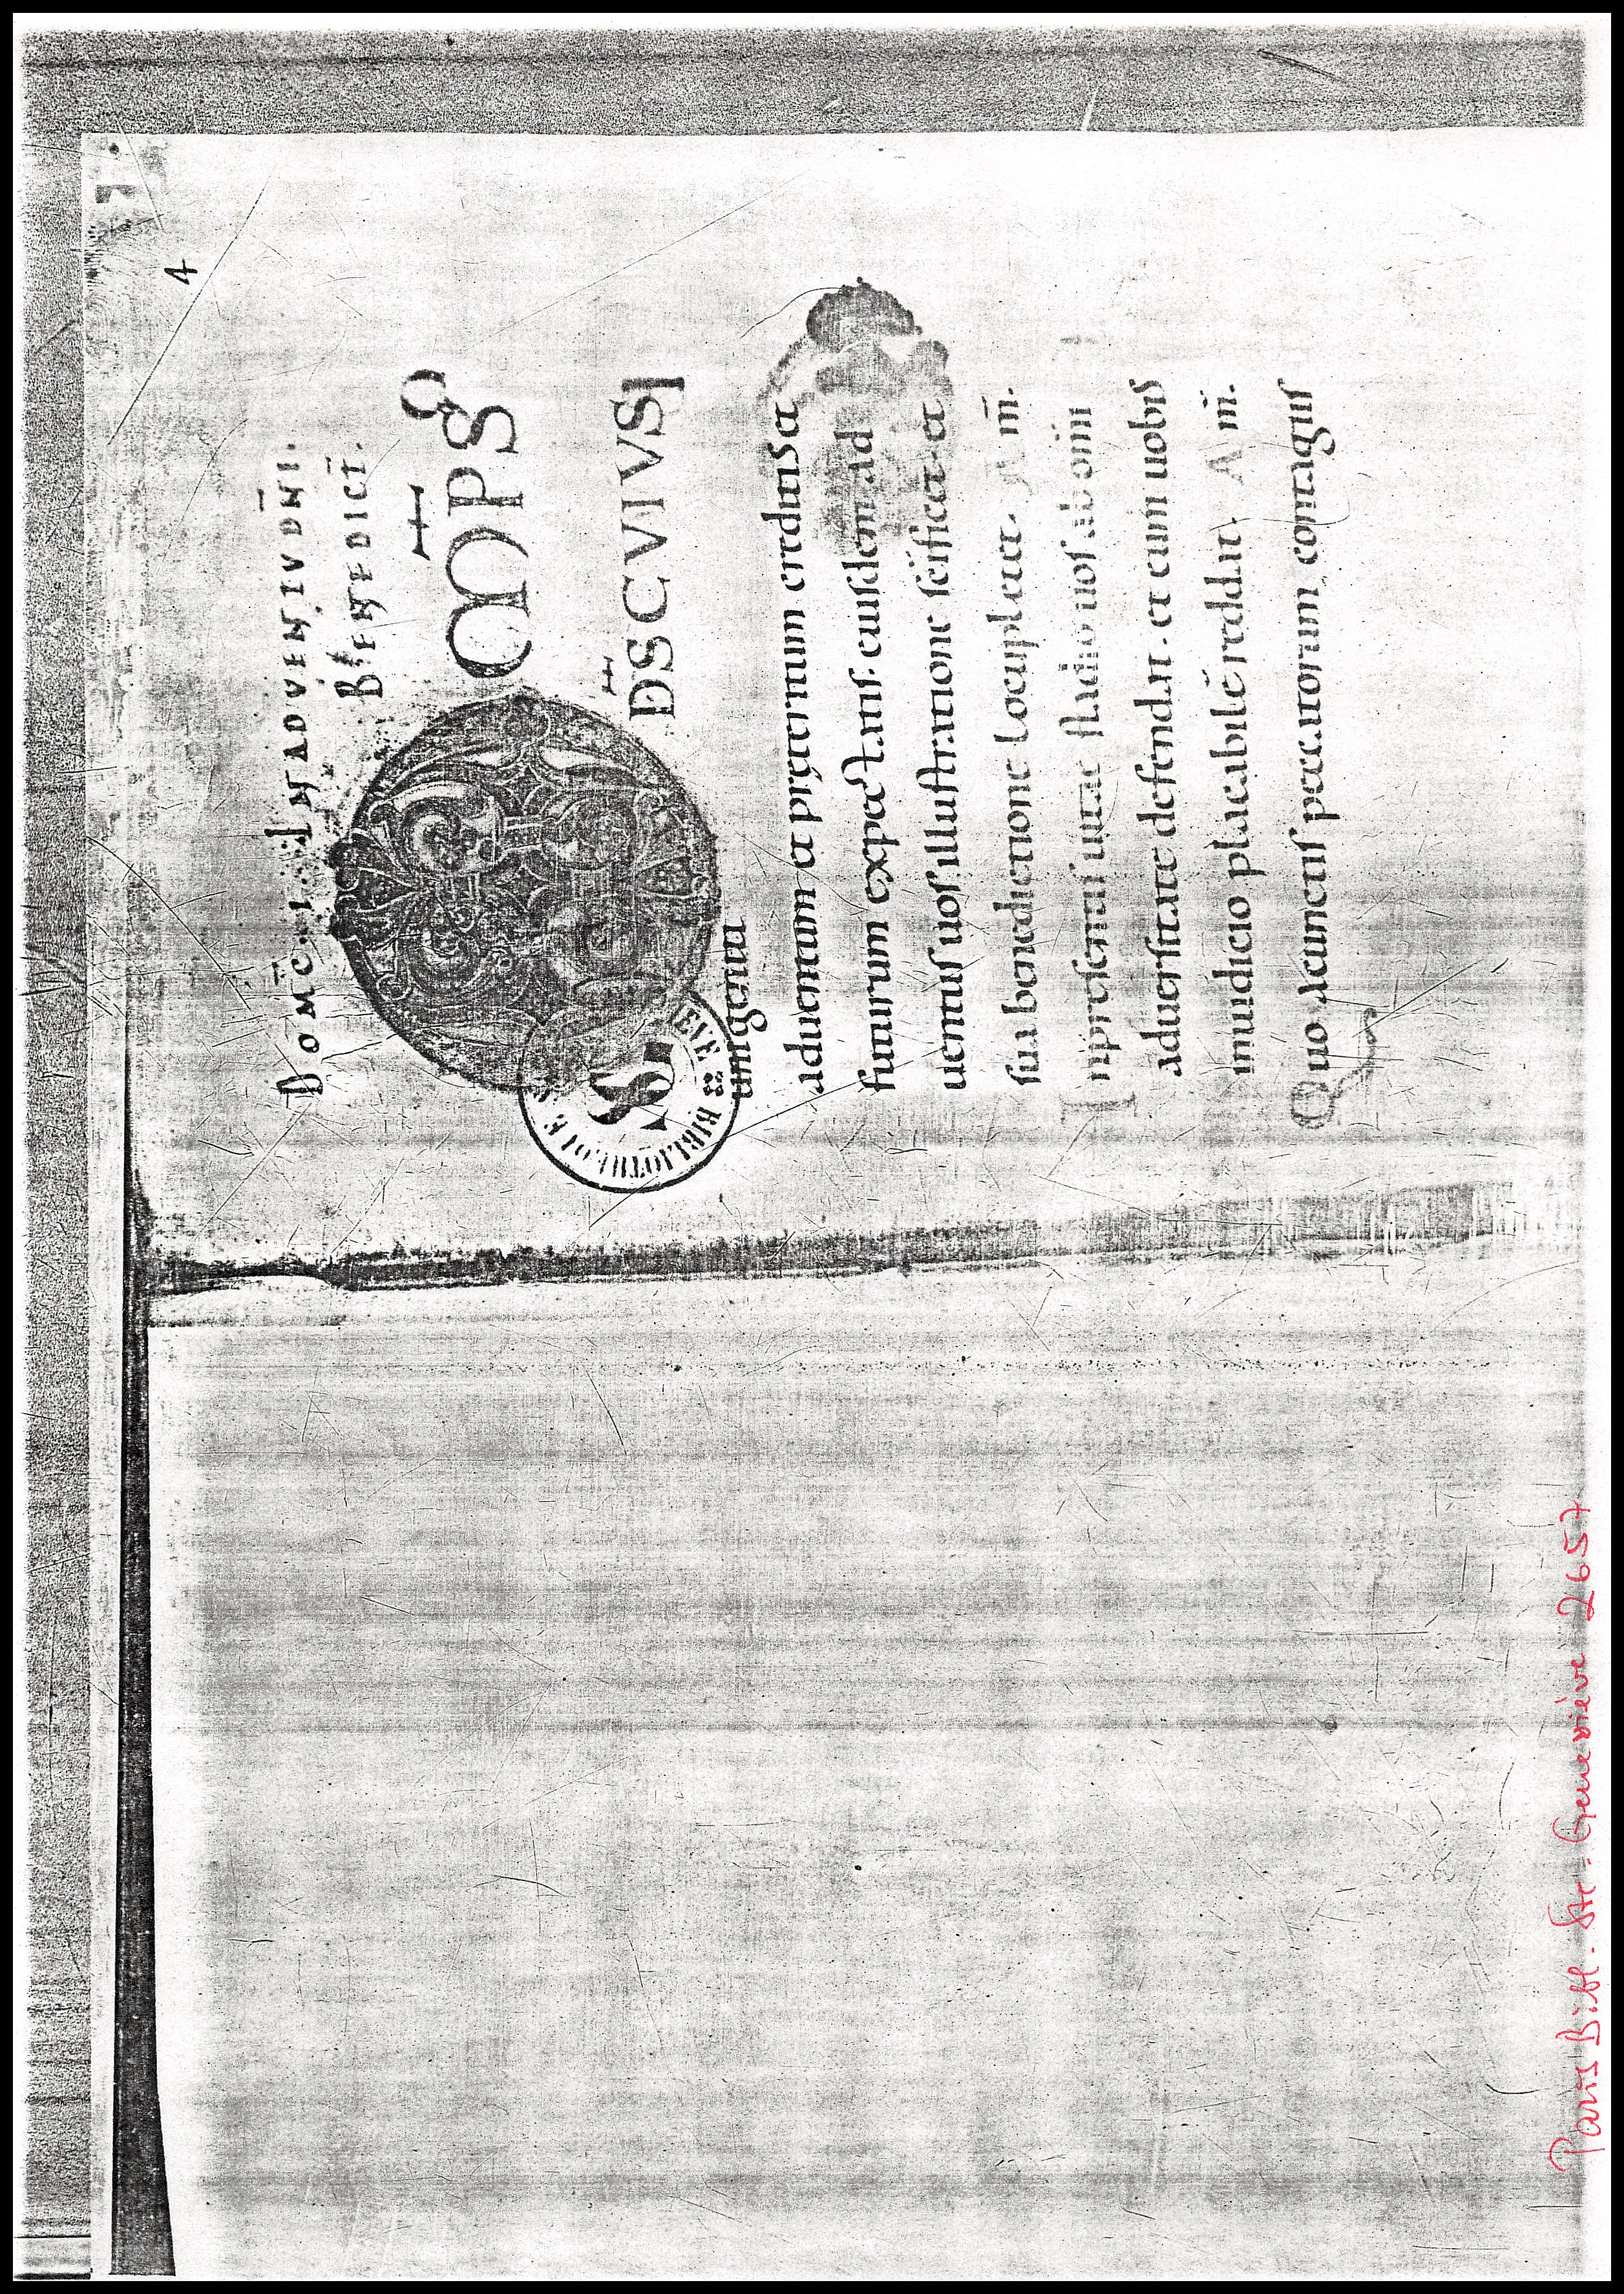 4
DOMĒ. I. IN ADVENTV DNI.
BENEDICT.
OMPS
DS CVIVS
unigeniti
aduentum et preteritum creditis et
futurum expectatis. eiusdem ad
uentus uos illustratione scificet. et
sua benedictione locupletet. Am.
In presentis uitae stadio uos ab omi
aduersitate defendat. et eum uobis
in iudicio placabile reddat. Am.
Quo a cunctis peccatorum contagiis
BIBLIOTH
EVE
Paris Bibl. Ste. Geneviève 2657